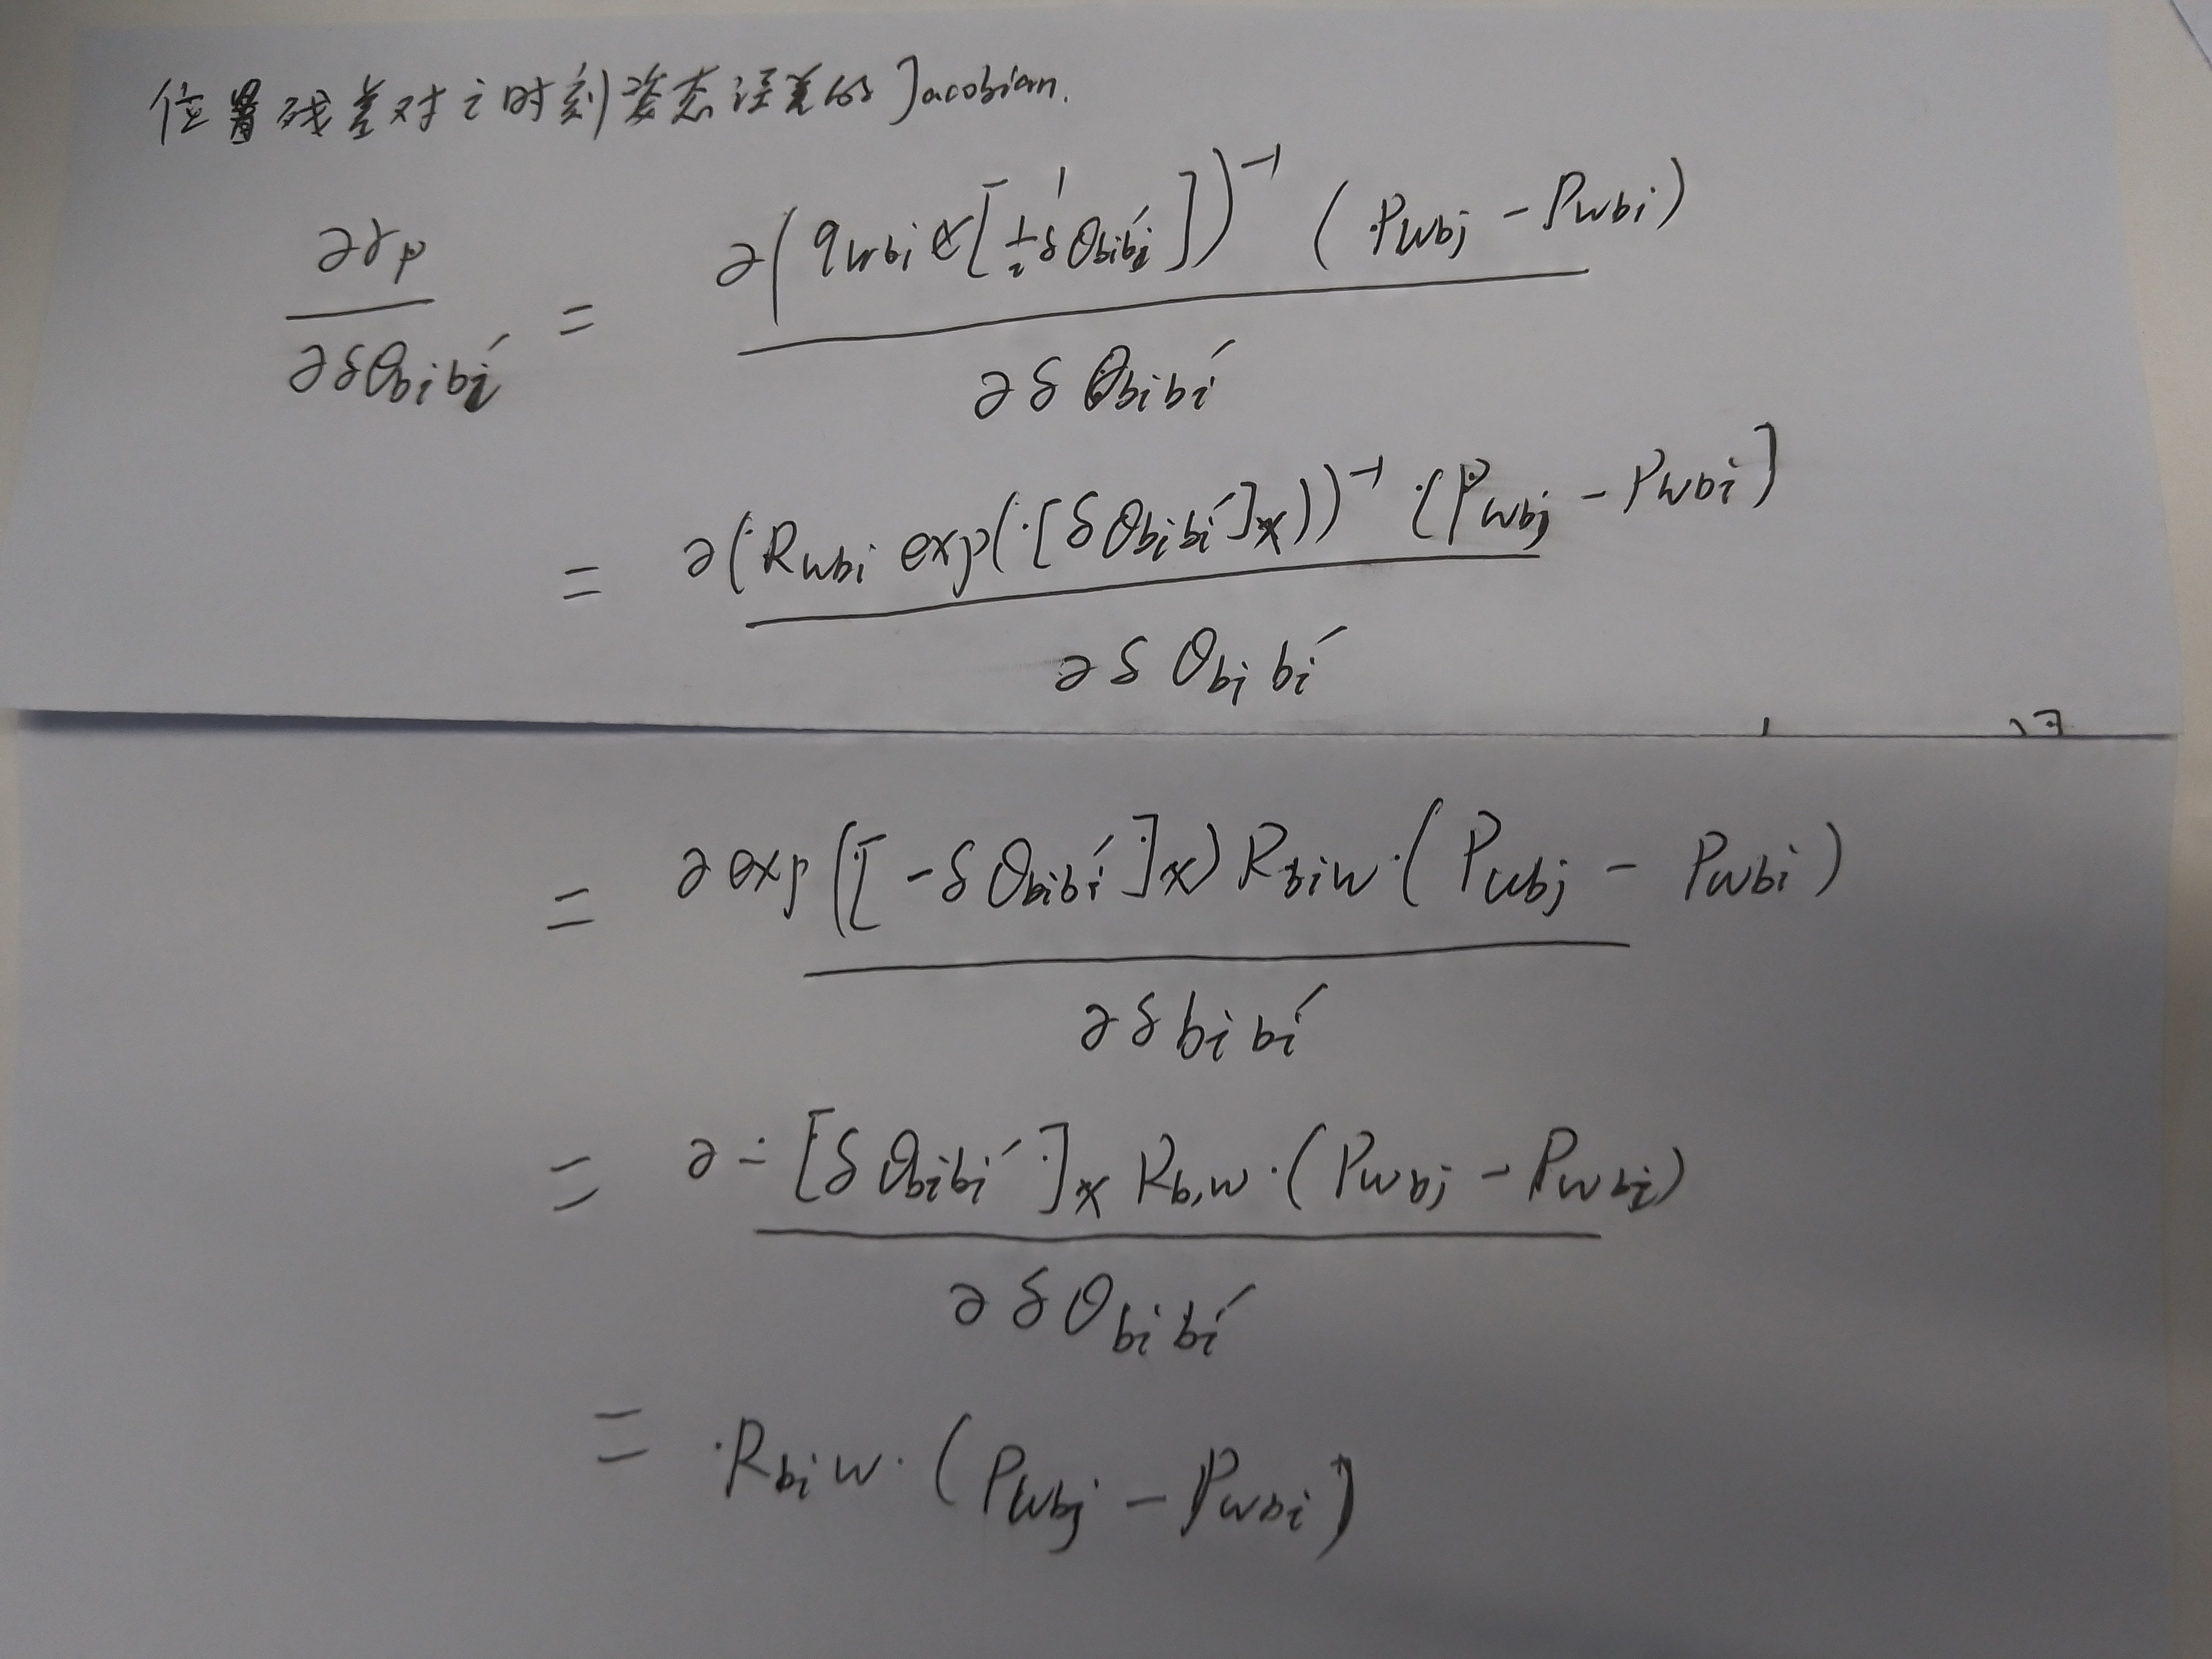 位置残差对i时刻姿态误差的Jacobian.
∂r_p / ∂δθ_{b_i b_i'} = ∂(q_{wb_i} ⊗ [1, ½δθ_{b_i b_i'}])^{-1} (P_{wb_j} - P_{wb_i}) / ∂δθ_{b_i b_i'}
= ∂(R_{wb_i} exp([δθ_{b_i b_i'}]_×))^{-1} · (P_{wb_j} - P_{wb_i}] / ∂δθ_{b_i b_i'}
= ∂exp([-δθ_{b_i b_i'}]_×) R_{b_i w} · (P_{wb_j} - P_{wb_i}) / ∂δ_{b_i b_i'}
= ∂ - [δθ_{b_i b_i'}]_× R_{b_i w} · (P_{wb_j} - P_{wb_i}) / ∂δθ_{b_i b_i'}
= R_{b_i w} · (P_{wb_j} - P_{wb_i})